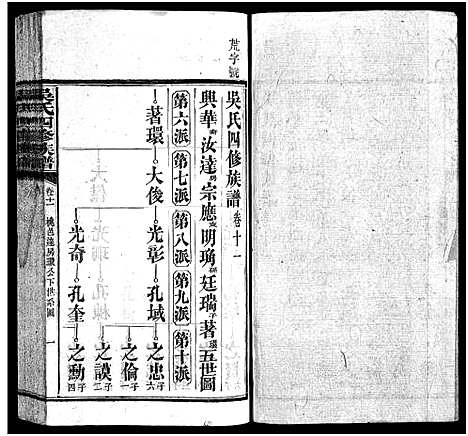 荒字號
吳氏四修族譜 卷十一
興華 汝達房 宗應 明瑀 廷瑞子 著環五世圖
第六派 第七派 第八派 第九派 第十派
著環 大俊 光彰 孔域 之忠 子六
之倫 子二
之謨 子二
光奇 孔奎 之勳 子四
吳氏四修族譜 卷十一 達房環公下世系圖 一